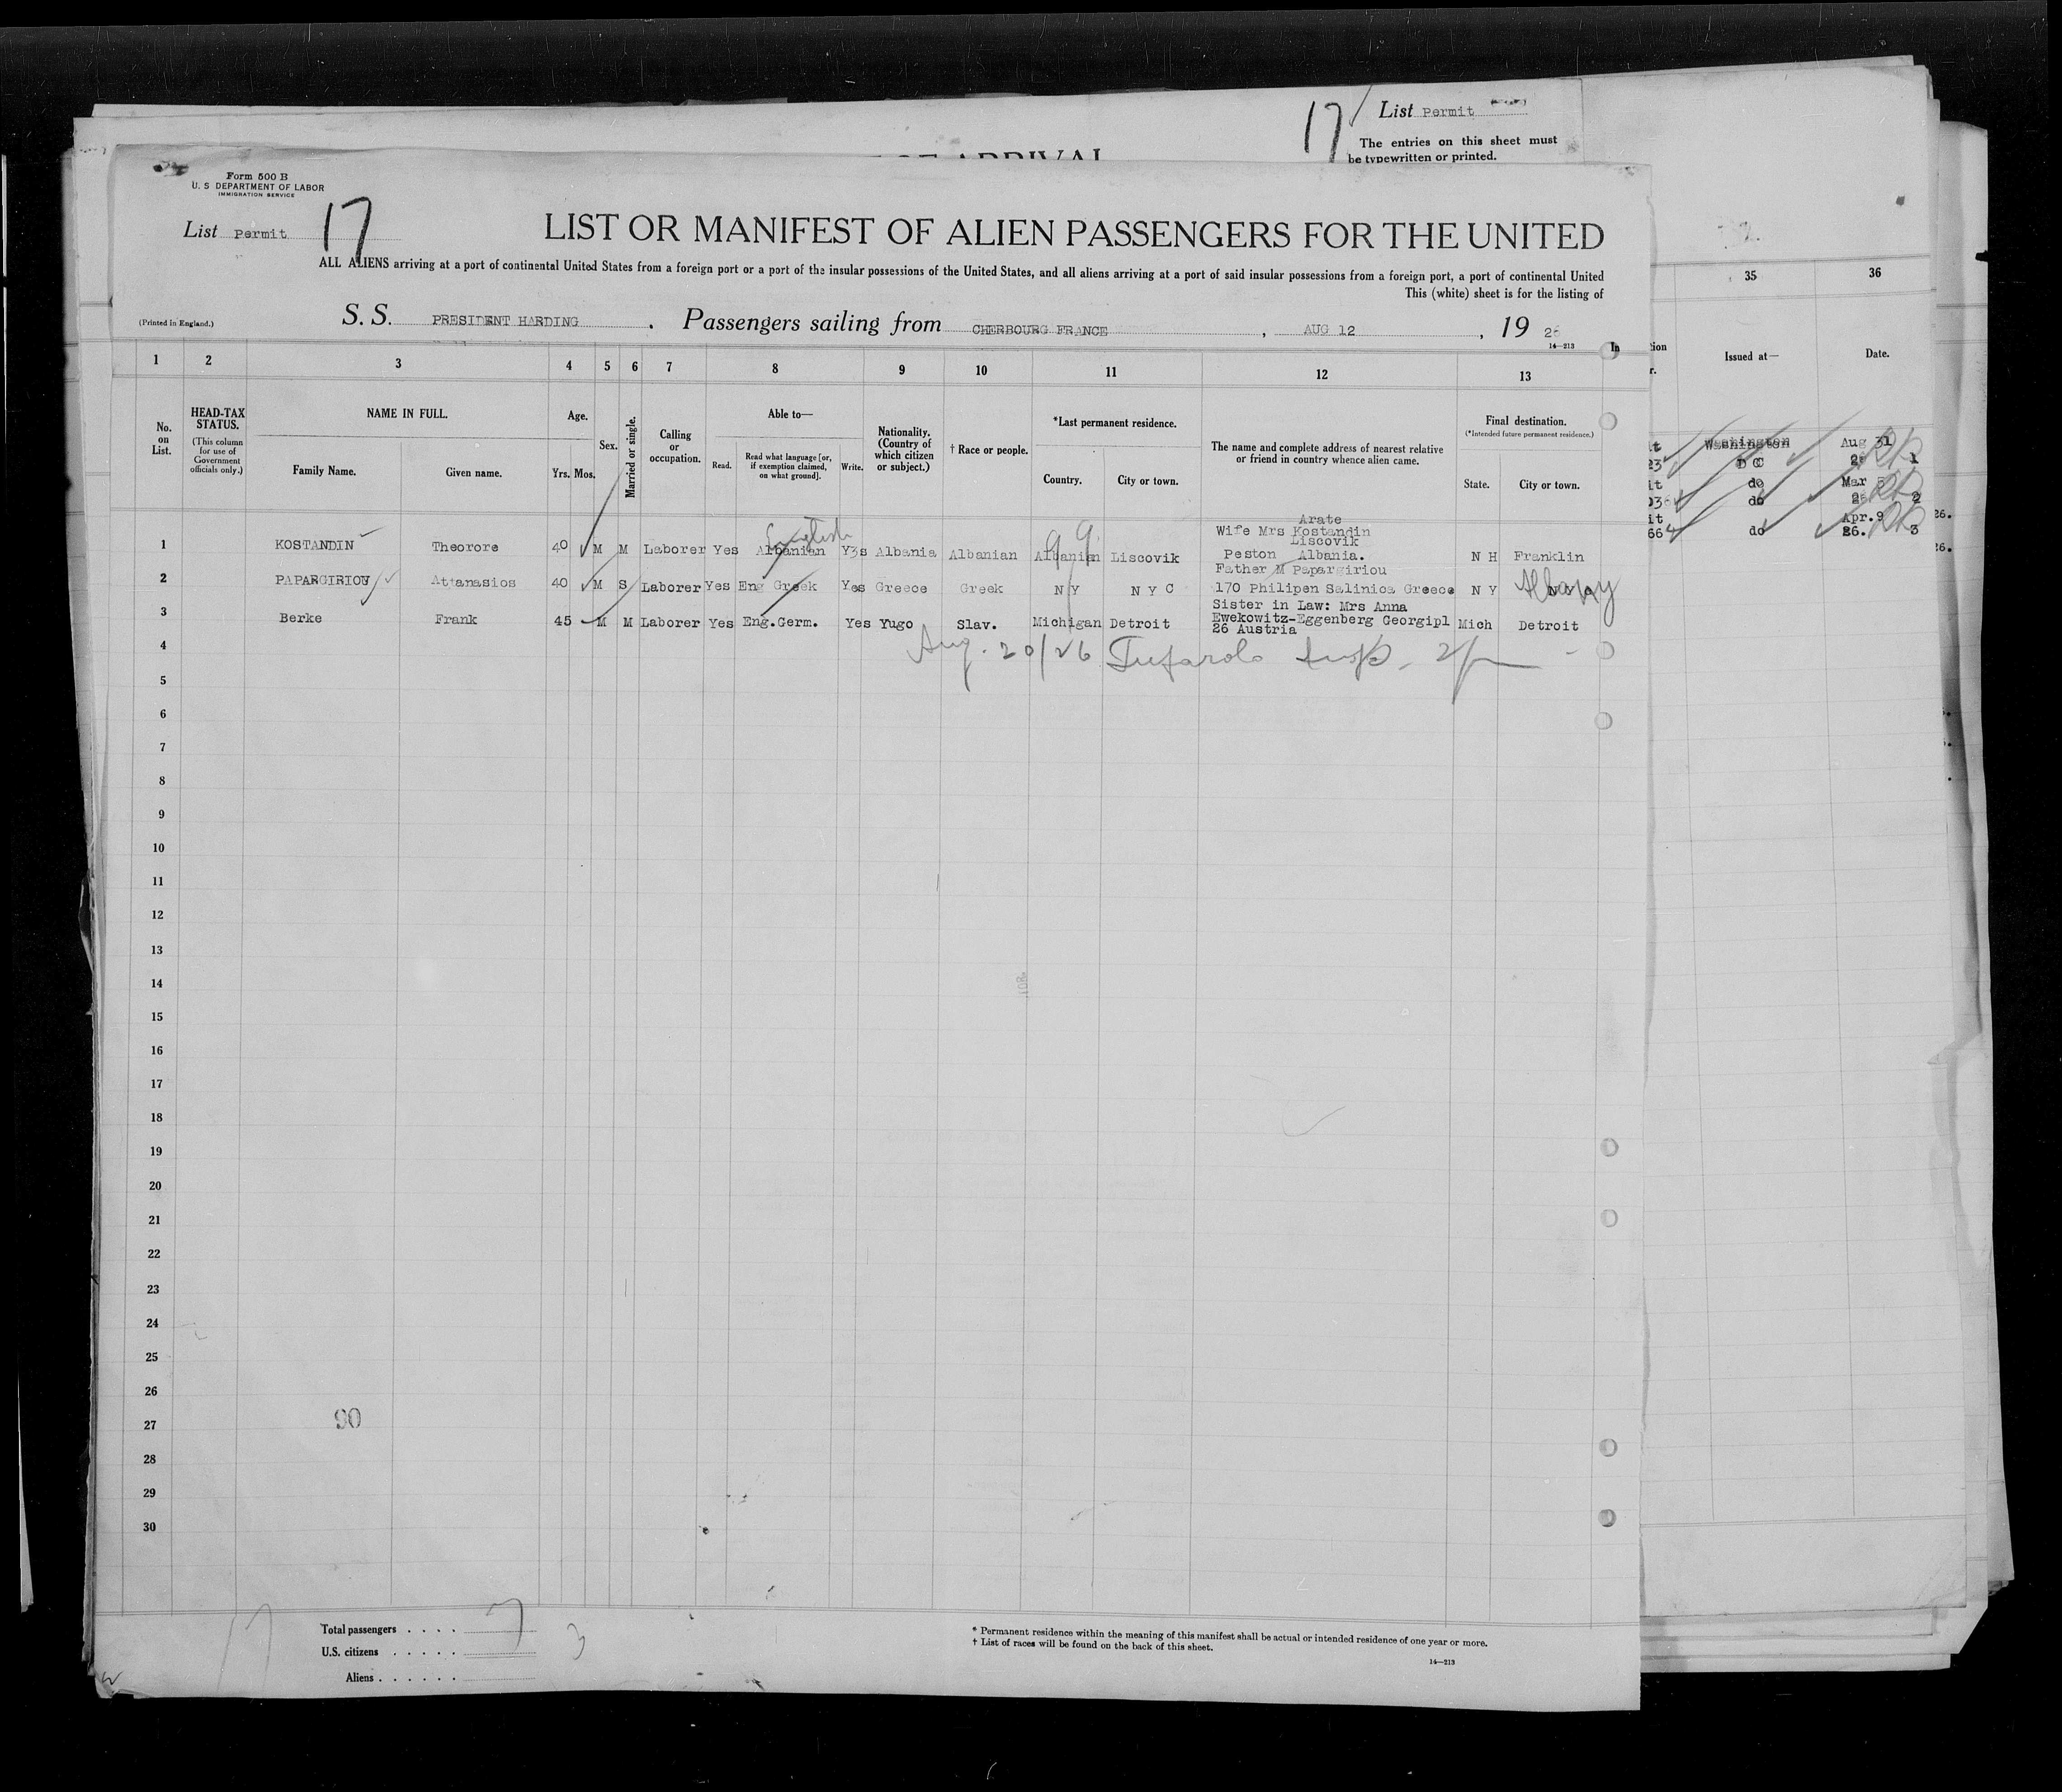 List Permit
17
The entries on this sheet must
be typewritten or printed.
Form 500 B
U. S DEPARTMENT OF LABOR
IMMIGRATION SERVICE
List Permit 17
LIST OR MANIFEST OF ALIEN PASSENGERS FOR THE UNITED
ALL ALIENS arriving at a port of continental United States from a foreign port or a port of the insular possessions of the United States, and all aliens arriving at a port of said insular possessions from a foreign port, a port of continental United
This (white) sheet is for the listing of
(Printed in England.)
S. S. PRESIDENT HARDING . Passengers sailing from CHERBOURG FRANCE , AUG 12 , 19 26
14—213
1 2 3 4 5 6 7 8 9 10 11 12 13
No. on List.
HEAD-TAX STATUS.
(This column for use of Government officials only.)
NAME IN FULL.
Family Name. Given name.
Age.
Yrs. Mos.
Sex.
Married or single.
Calling or occupation.
Able to—
Read. Read what language [or, if exemption claimed, on what ground]. Write.
Nationality. (Country of which citizen or subject.)
† Race or people.
*Last permanent residence.
Country. City or town.
The name and complete address of nearest relative or friend in country whence alien came.
Final destination.
(*Intended future permanent residence.)
State. City or town.
35 36
Issued at— Date.
Washington Aug 31
D C 1
do Mar
do 2
Apr.9
do 26. 3
Arate
Wife Mrs Kostandin
Liscovik
1 KOSTANDIN Theorore 40 M M Laborer Yes Albanian English Y3s Albania Albanian Albanian Liscovik Peston Albania. N H Franklin
Father M Papargiriou
2 PAPARGIRIOU Attanasios 40 M S Laborer Yes Eng Greek Yes Greece Greek N Y N Y C 170 Philipen Salinica Greece N Y Albany
Sister in Law: Mrs Anna
3 Berke Frank 45 M M Laborer Yes Eng.Germ. Yes Yugo Slav. Michigan Detroit Ewekowitz-Eggenberg Georgipl Mich Detroit
26 Austria
Aug. 20/26
4
5
6
7
8
9
10
11
12
13
14
15
16
17
18
19
20
21
22
23
24
25
26
27
90
28
29
30
Total passengers . . . .
U.S. citizens . . . . .
Aliens . . . . . .
17
3
* Permanent residence within the meaning of this manifest shall be actual or intended residence of one year or more.
† List of races will be found on the back of this sheet.
14—213